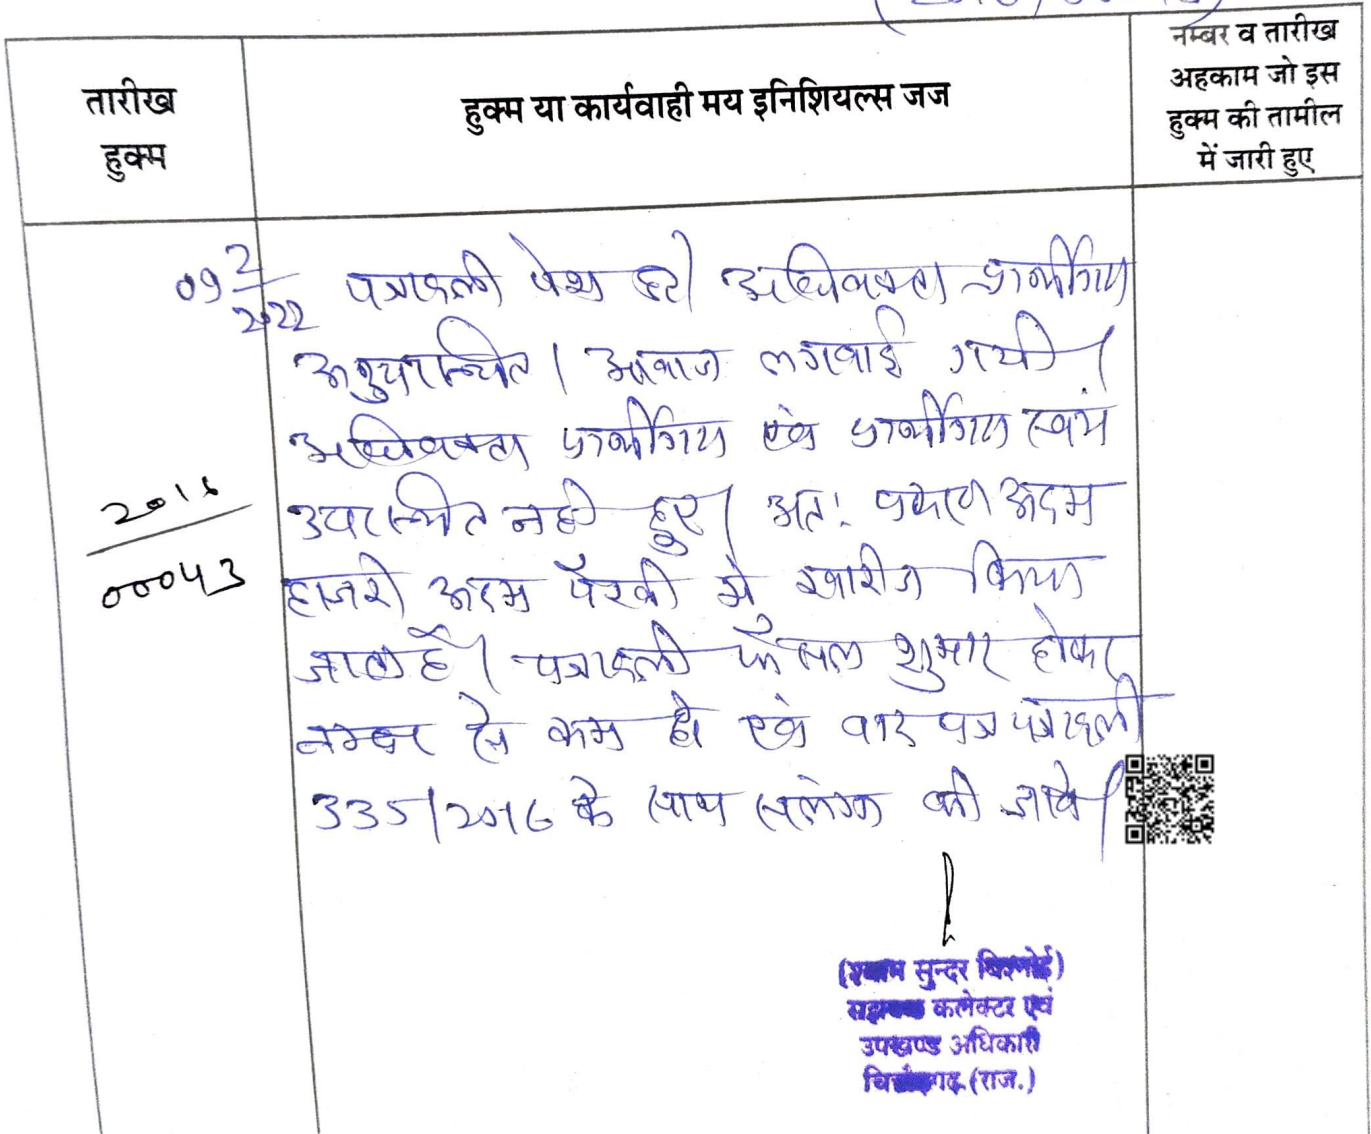 तारीख
हुक्म
हुक्म या कार्यवाही मय इनिशियल्स जज
नम्बर व तारीख
अहकाम जो इस
हुक्म की तामील
में जारी हुए
09 2/2022
पत्रावली पेश हुई। अधिवक्ता प्रार्थीगण
अनुपस्थित। आवाज लगवाई गयी।
अधिवक्ता प्रार्थीगण एवं प्रार्थीगण स्वयं
उपस्थित नही हुए। अत: प्रकरण अदम
हाजरी अदम पैरवी मे खारीज किया
जाता है। पत्रावली फैसल शुमार होकर
नम्बर से कम हो एवं वाद पत्र पत्रावली
335/2016 के साथ सलंग्न की जावे।
2016
00043
(श्याम सुन्दर बिश्नोई)
सहायक कलेक्टर एवं
उपखण्ड अधिकारी
चित्तौड़गढ़ (राज.)